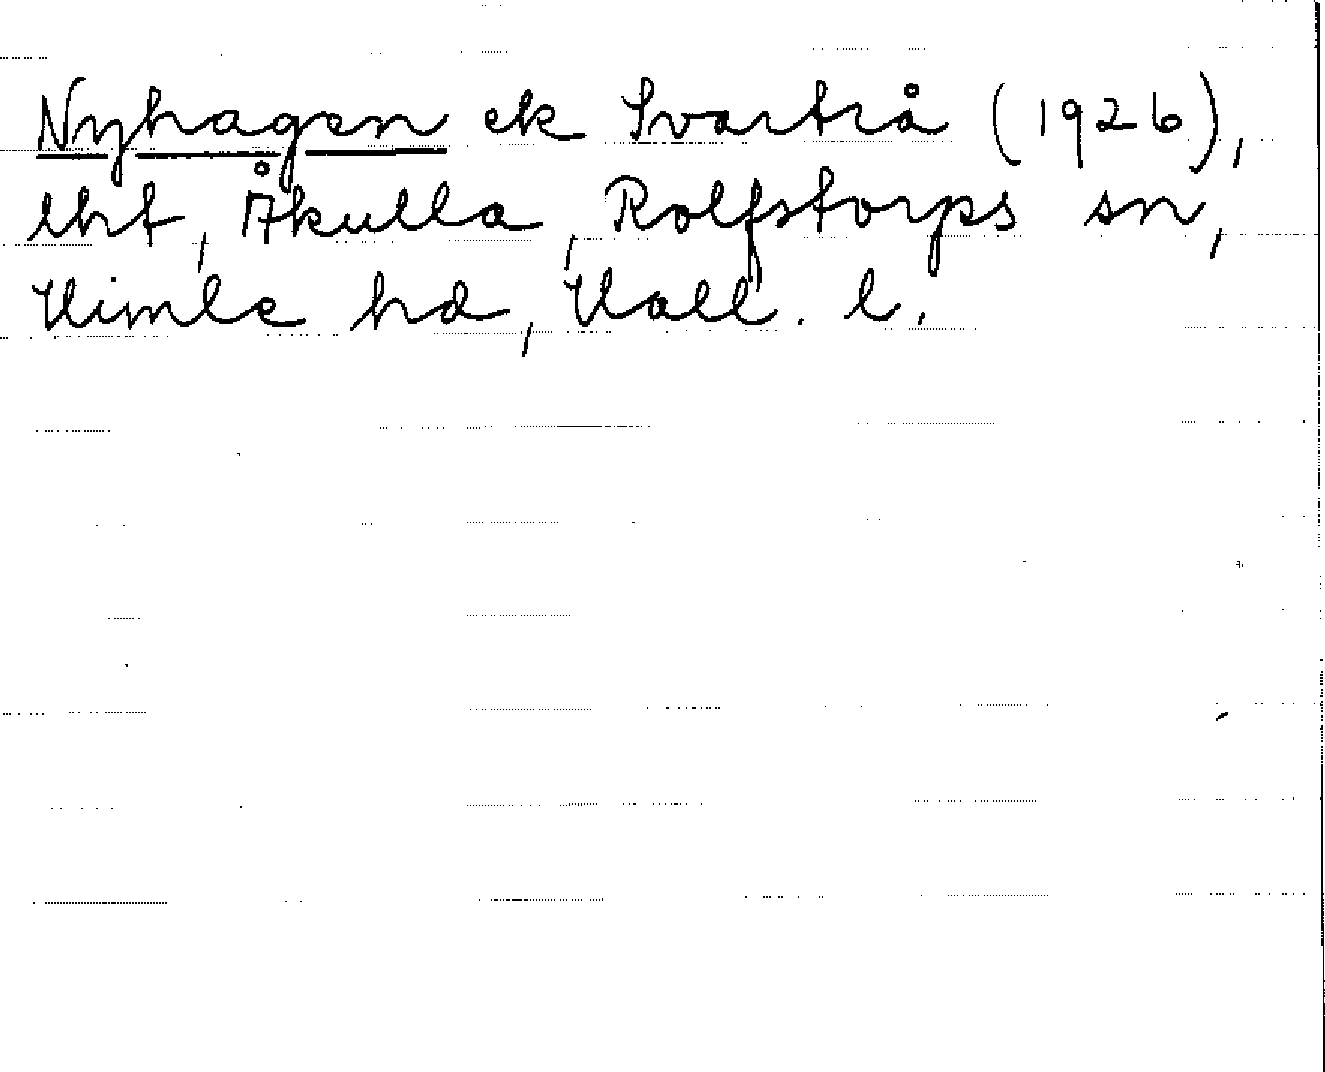 Nyhagen ek Svartrå (1926),
lht, Åkulla, Rolfstorps sn,
Himle hd, Hall. l.